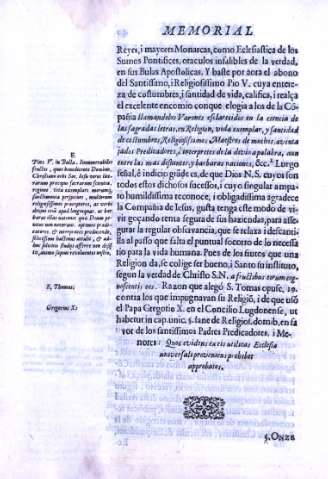 MEMORIAL
Reyes, i mayores Monarcas, como Eclesiastica de los
Sumos Pontifices, oraculos infalibles de la verdad,
en sus Bulas Apostolicas. Y baste por aora el abono
del Santissimo, i Religiosissimo Pio V. cuya entere-
za de costumbres, i santidad de vida, califica, i realça
el excelente encomio con que elogia a los de la Cõ-
pañia llamandolos Varones esclarecidos en la ciencia de
las sagradas letras, en Religion, vida exemplar, y santidad
de costumbres, Religiosissimos Maestros de muchos,
jados Predicadores, e interpretes de la divina palabra, aun
entre las mas distantes, y barbaras naciones, &c. Luego
señal, è indicio grãde es, de que Dios N.S. cuyos son
todos estos dichosos sucessos, i cuyo singular ampa-
ro humildissima reconoce, i obligadissima agradece
la Compañia de Jesus, gusta tenga este modo de vi-
vir goçando renta segura de sus haziendas, para asse-
gurar la regular observancia, que se relaxa i descami-
na al passo que falta el puntual socorro de lo necessa-
rio para la vida humana. Pues de los frutos que una
Religion da, se colige ser bueno, i Santo su instituto,
segun la verdad de Christo S.N. a fructibus eorum cog-
noscetis eos. Razon que alegò S. Tomas opusc. 19.
contra los que impugnavan su Religiõ, i de que usò
el Papa Gregorio X. en el Concilio Lugdonense, ut
habetur in cap. unic. §. sane de Religios. domib. en fa-
vor de los santissimos Padres Predicadores, i Me-
nores: Quos evidens ex eis utilitas Ecclesiæ
universali proveniens perhibet
approbatos.
E
Pius V. in Bulla. Innumerabiles
fructus, quos benedicente Domino,
Christiano orbi Soc. Iesu viros litte-
rarum precipue sacrarum scientia,
religione, vita exemplari, morumq.
sanctimonia perspicuos, multorum
religiosissimos præceptores, ac verbi
divini
E. Thomas.
Gregorius X.
§. ONZE